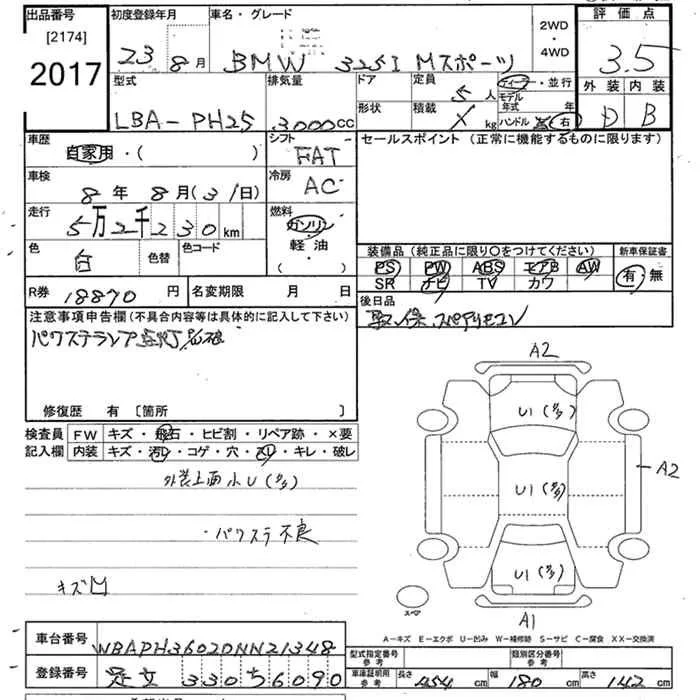 出品番号 初度登録年月 車名・グレード 2WD・4WD 評価点
[2174]
2017 23 8月 BMW 325I Mスポーツ 3.5
型式 排気量 ドア 定員 5人 ディーラー・並行 外装 内装
LBA-PH25 3000cc 形状 積載 X kg モデル年式 年 ハンドル 左・右 D B
車歴 自家用・( ) シフト FAT セールスポイント(正常に機能するものに限ります)
車検 8年 8月(31日) 冷房 AC
走行 5万2千230km 燃料 ガソリン 軽油 ( )
色 白 色替 色コード 装備品(純正品に限り○をつけてください) 新車保証書
PS PW ABS エアB AW 有・無
SR ナビ TV カワ
R券 18870円 名変期限 月 日 後日品
取、保、スペアリモコン
注意事項申告欄(不具合内容等は具体的に記入して下さい)
パワステランプ点灯
修復歴 有 [箇所 ]
検査員記入欄 FW キズ・飛石・ヒビ割・リペア跡・×要
内装 キズ・汚レ・コゲ・穴・スレ・キレ・破レ
外装上面小U(多)
・パワステ不良
キズ凹
A2
U1(多)
A2
U1(多)
U1(多)
スペア
A1
A-キズ E-エクボ U-凹み W-補修跡 S-サビ C-腐食 XX-交換済
車台番号 WBAPH36020NN21348 型式指定番号 参考 類別区分番号 参考
登録番号 330 56090 車庫証明用 参考 長さ 454cm 幅 180cm 高さ 142cm